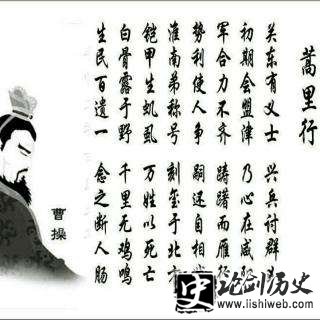 蒿里行
关东有义士 兴兵讨群
初期会盟津 乃心在咸
军合力不齐 踌躇而雁行
势利使人争 嗣还自相
淮南弟称号 刻玺于北
铠甲生虮虱 万姓以死亡
白骨露于野 千里无鸡鸣
生民百遗一 念之断人肠
曹操
史 论剑历史
www.lishiweb.com